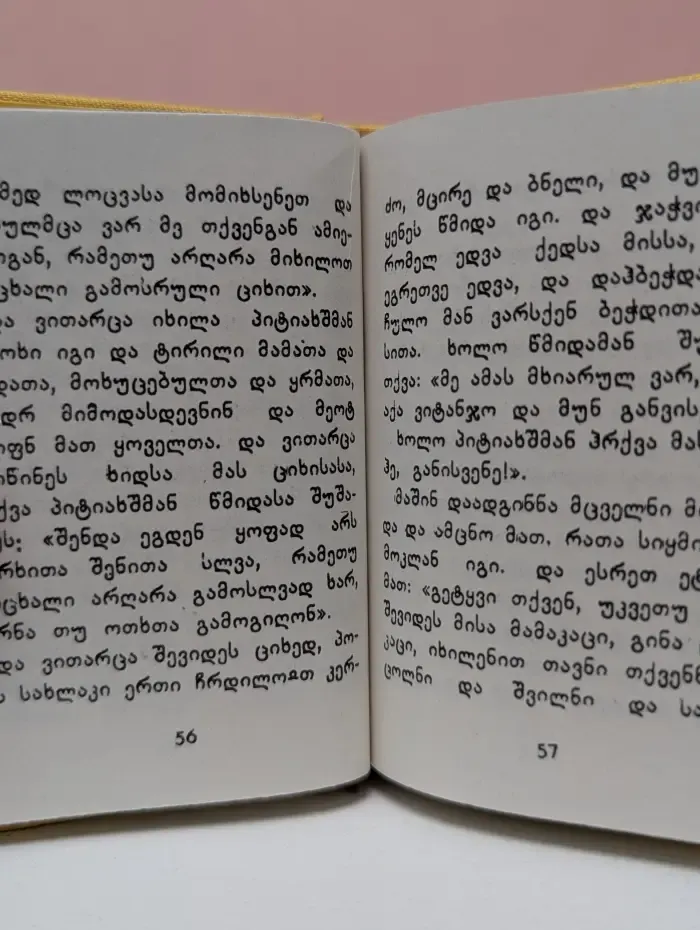 მედ ლოცვასა მომიხსენეთ და
ულმცა ვარ მე თქვენგან ამიე-
რგან, რამეთუ არღარა მიხილოთ
ცხალი გამოსრული ციხით».
და ვითარცა იხილა პიტიახშმან
ოხი იგი და ტირილი მამათა და
დათა, მოხუცებულთა და ყრმათა,
დრ მიმოდასდევნინ და მეოტ
ოფნ მათ ყოველთა. და ვითარცა
იწინეს ხიდსა მას ციხისასა,
ქვა პიტიახშმან წმიდასა შუშა-
ს: «შენდა ეგდენ ყოფად არს
რხითა შენითა სლვა, რამეთუ
ცხალი არღარა გამოსლვად ხარ,
რნა თუ ოთხთა გამოგიღონ».
და ვითარცა შევიდეს ციხედ, პო-
ს სახლაკი ერთი ჩრდილოჲთ კერ-
56
ძო, მცირე და ბნელი, და მუ
ყენეს წმიდა იგი. და ჯაჭვი
რომელ ედვა ქედსა მისსა,
ეგრეთვე ედვა, და დაჰბეჭდა
ჩულო მან ვარსქენ ბეჭდითა
სითა. ხოლო წმიდამან შუ
თქვა: «მე ამას მხიარულ ვარ,
აქა ვიტანჯო და მუნ განვის
ხოლო პიტიახშმან ჰრქვა მას
ჰე, განისვენე!».
მაშინ დაადგინნა მცველნი მი
და და ამცნო მათ. რათა სიყმი
მოკლან იგი. და ესრეთ ეტ
მათ: «გეტყვი თქვენ, უკვეთუ
შევიდეს მისა მამაკაცი, გინა
კაცი, იხილენით თავნი თქვენნ
ცოლნი და შვილნი და სა
57